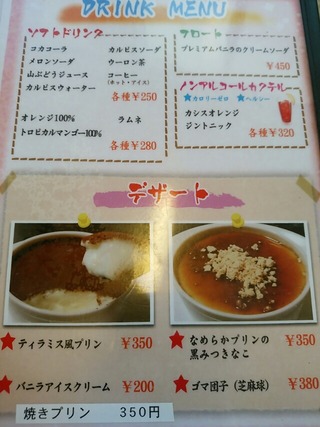 DRINK MENU
ソフトドリンク
コカコーラ
メロンソーダ
山ぶどうジュース
カルピスウォーター
カルピスソーダ
ウーロン茶
コーヒー
(ホット・アイス)
各種¥250
オレンジ100%
トロピカルマンゴー100%
ラムネ
各種¥280
フロート
プレミアムバニラのクリームソーダ
¥450
ノンアルコールカクテル
★カロリーゼロ ★ヘルシー
カシスオレンジ
ジントニック
各種¥320
デザート
★ティラミス風プリン ¥350
★バニラアイスクリーム ¥200
焼きプリン 350円
★なめらかプリンの
黒みつきなこ ¥350
★ゴマ団子(芝麻球) ¥380